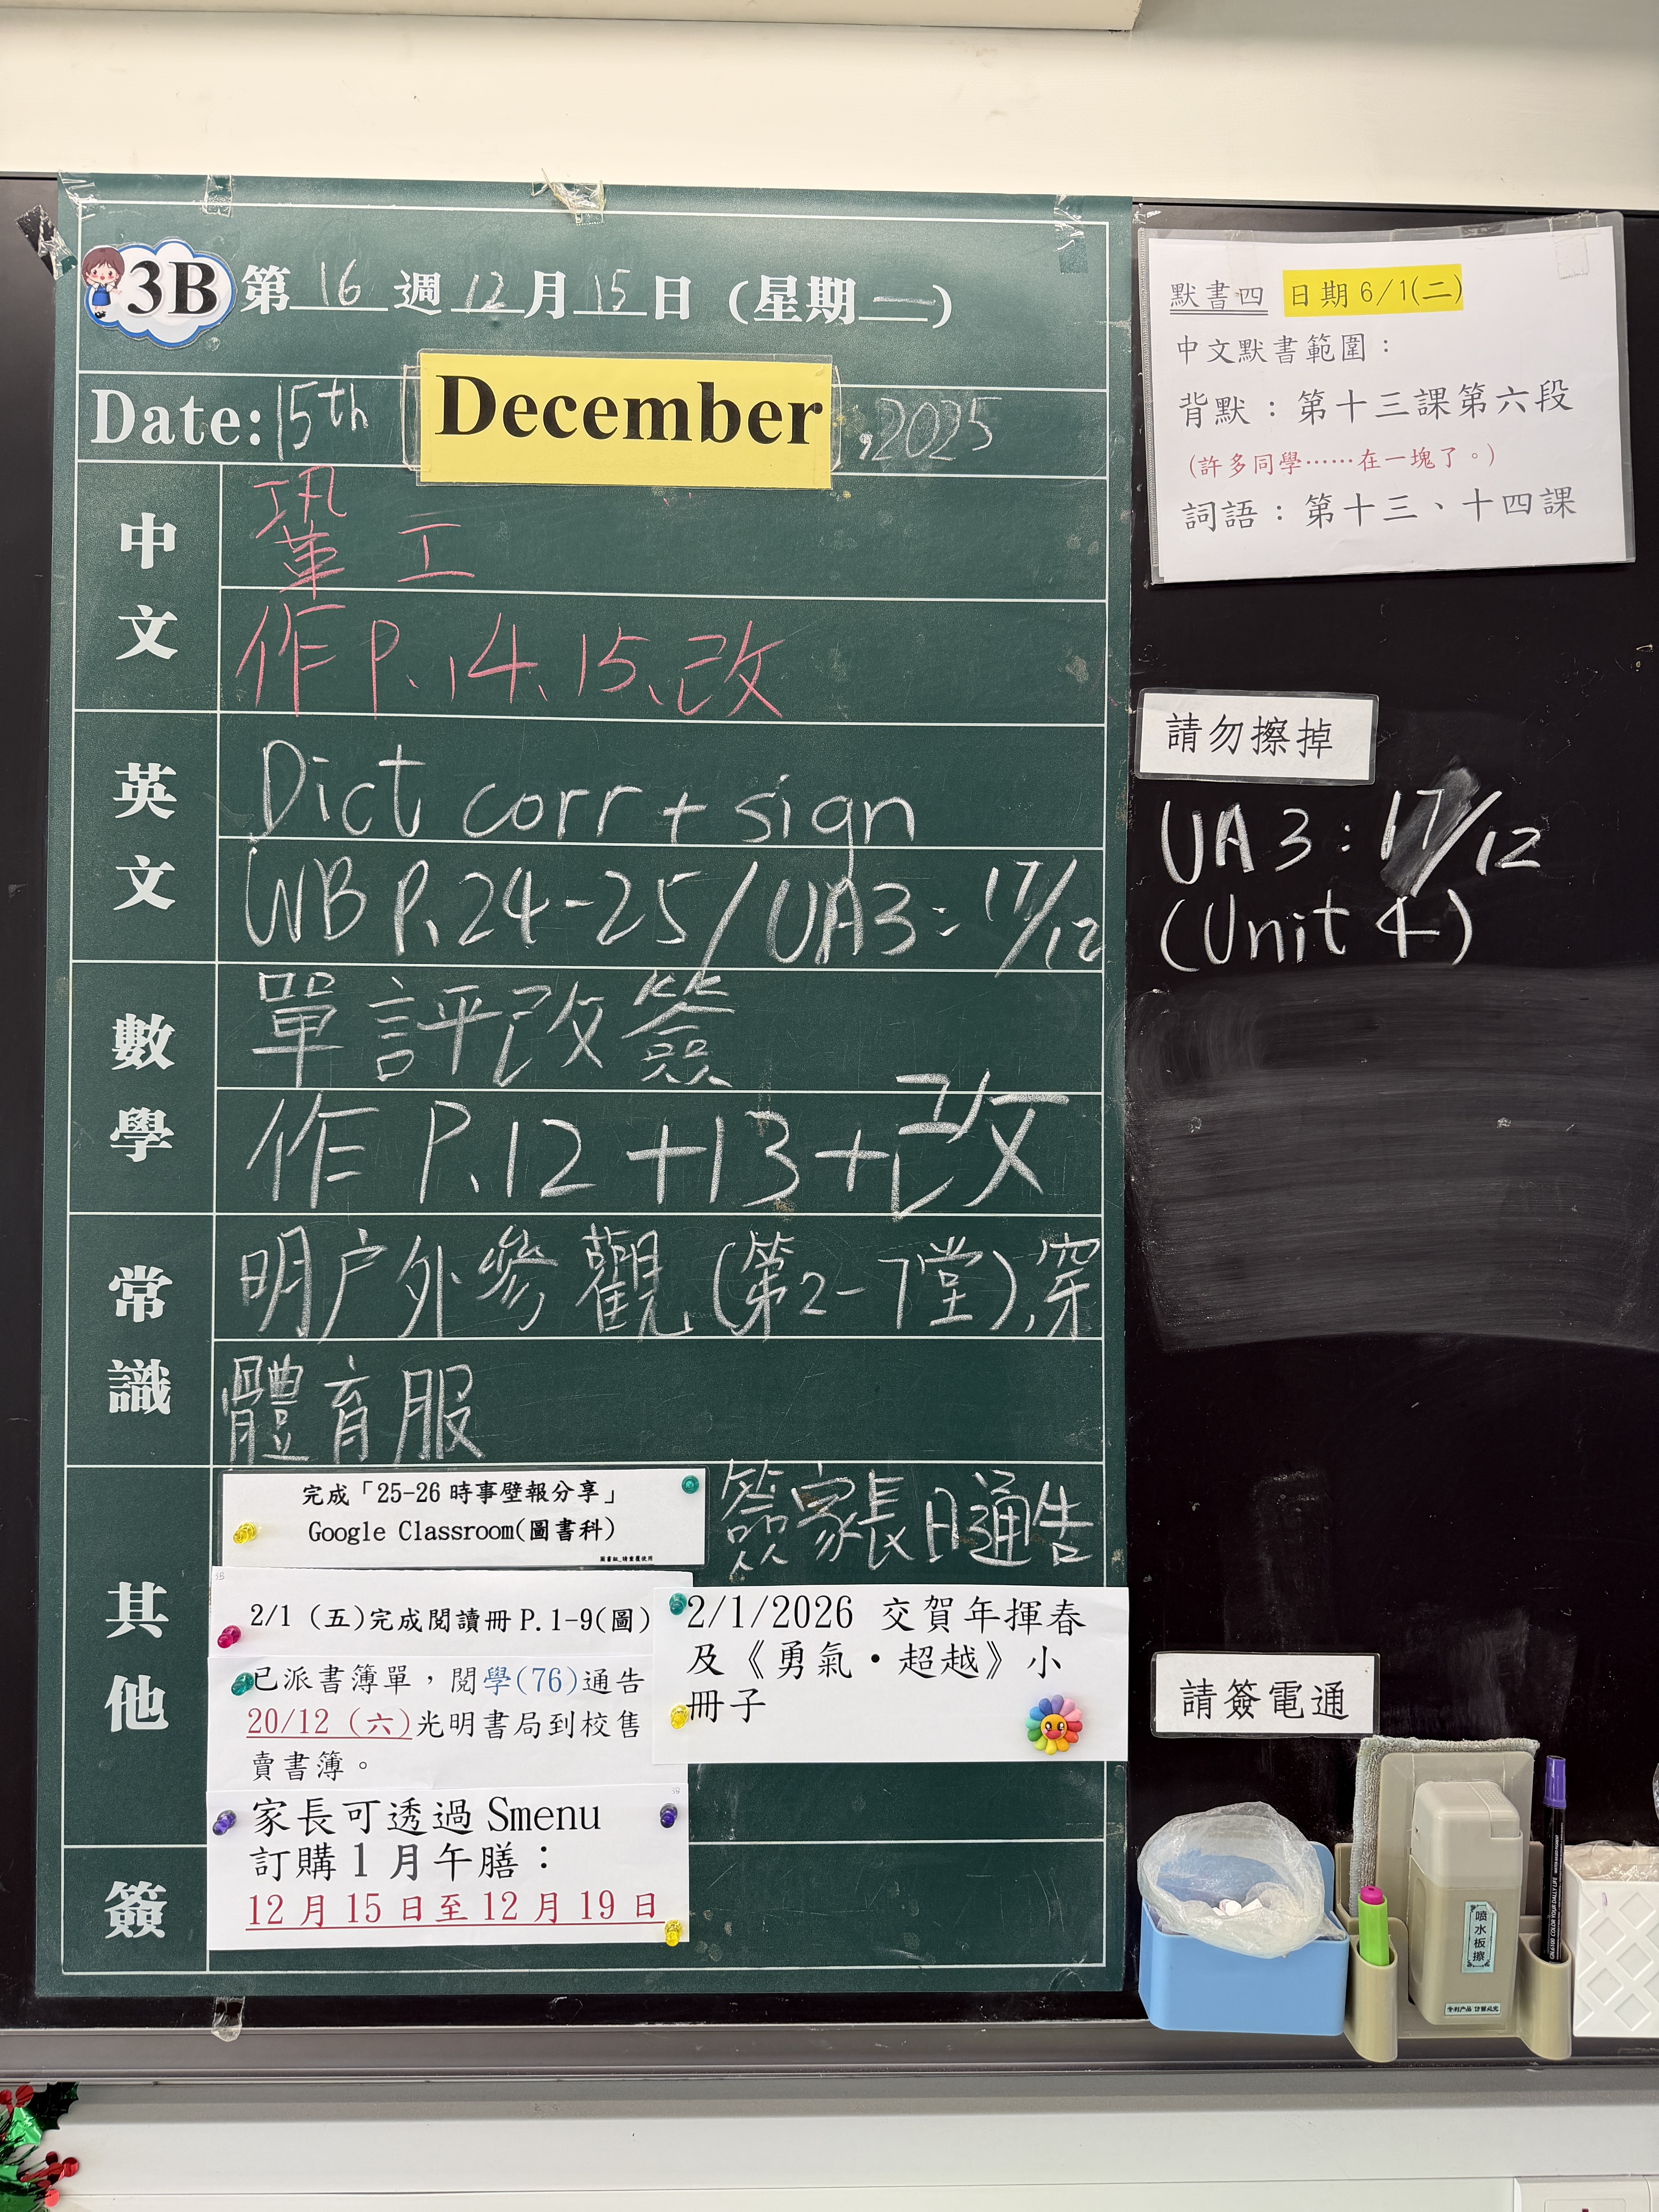 3B 第 16 週 12 月 15 日 (星期一)
Date: 15th December, 2025
中文
鞏 工
作 P.14、15、改
英文
Dict corr + sign
WB P.24-25 / UA3: 17/12
數學
單評改簽
作 P.12 +13 +改
常識
明户外參觀(第2-7堂),穿
體育服
其他
完成「25-26 時事壁報分享」
Google Classroom(圖書科)
圖書組_請重覆使用
簽家長日通告
3B
2/1 (五)完成閱讀冊 P.1-9(圖)
已派書簿單,閱學(76)通告
20/12 (六)光明書局到校售
賣書簿。
2/1/2026 交賀年揮春
及《勇氣・超越》小
冊子
簽
3B
家長可透過 Smenu
訂購 1 月午膳:
12 月 15 日至 12 月 19 日
默書四 日期 6/1(二)
中文默書範圍:
背默:第十三課第六段
(許多同學……在一塊了。)
詞語:第十三、十四課
請勿擦掉
UA 3: 17/12
(Unit 4)
請簽電通
喷水板擦